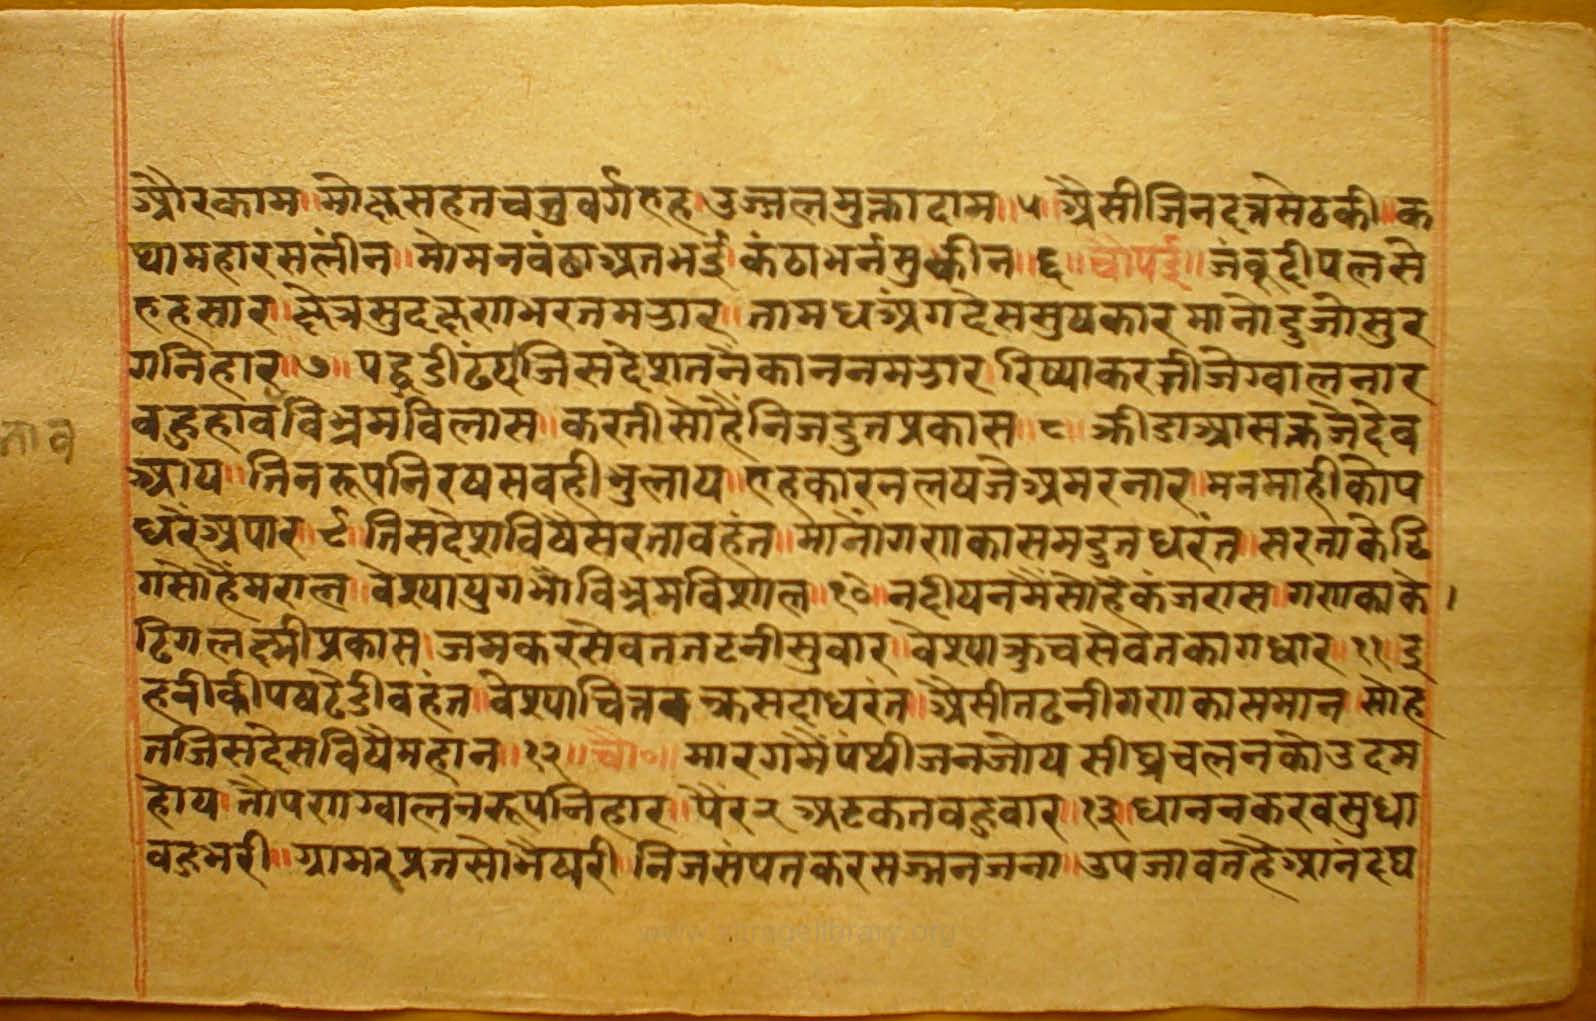 और काम॥ मोक्ष सहत चतुवर्ग एह॥ उज्जल मुक्ता दाम॥५॥ ऐसी जिनदत्त सेठकी॥ क
था महा रस लीन॥ मो मन वंछा अत भई॥ कंठाभर्न सु कीन॥६॥ चौपई॥ जंबूदीप लसे
एह सार॥ क्षेत्र सुदक्षण भरत मझार॥ ताम ध अंगदेस सुषकार मानो दुजो सुर
ग निहार॥७॥ पद्धडी छंद जिस देश तनै कानन मझार रिष्या करती जे ग्वाल नार
बहु हाव विभ्रम विलास॥ करती सोहैं निज दुत प्रकास॥८॥ क्रीडा आसक्त जे देव
आय॥ तिन रूप निरष सबही भुलाय॥ एह कारन लष जे अमर नार॥ मन माही कोप
धरें अपार॥९॥ तिस देश विषै सरता वहंत॥ मानों गणका सम दुत धरंत॥ सरता के ढि
ग सोहैं मराल॥ वेश्या युग भौ विभ्रम विशाल॥१०॥ नदीयन मैं सोहे कंज रास॥ गणका के
ढिग लक्ष्मी प्रकास॥ जम कर सेवत तटनी सुवार॥ वेश्या कुच सेवत काग धार॥११॥ इ
ह नीकी पष टेडी वहंत॥ वेश्या चित्त वक्र सदा धरंत॥ ऐसी तटनी गणका समान सोह
त जिस देस विषै महान॥१२॥ चौ०॥ मारग मैं पंथी जन जोय सीघ्र चलन को उदम
होय॥ तौ पण ग्वालन रूप निहार॥ पैर २ अटकत बहु वार॥१३॥ धानन कर वसुधा
बहु भरी॥ ग्राम र प्रत सोभै षरी॥ निज संपत कर सज्जन जना॥ उपजावत है आनंद घ
www.vitragelibrary.org